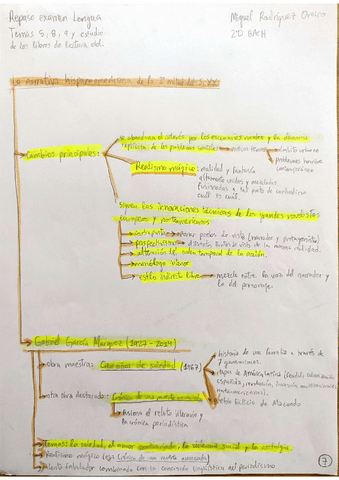 Repaso examen Lengua
Temas 5, 8, 9 y estudio
de los libros de lectura obl.
Miguel Rodríguez
2ºD BACH
La narrativa hispanoamericana de la II mitad del S. XX
Cambios principales:
Se abandona el interés por los escenarios rurales y la
de los problemas sociales nuevos temas ámbito urbano
problemas hombre
contemporáneo
Realismo mágico: realidad y fantasía
unidas y mezcladas,
cuál es cuál.
Siguen las innovaciones técnicas de los grandes novelistas
europeos y norteamericanos
contrapunto varios puntos de vista (narrador y protagonista)
perspectivismo distintos puntos de vista de una misma realidad.
alteración del orden temporal de la acción.
monólogo interior
estilo indirecto libre mezcla entre la voz del narrador y
la del personaje.
Gabriel García Márquez (1927 - 2014)
obra maestra: Cien años de soledad (1967)
historia de una familia a través de
7 generaciones.
etapas de América Latina (
española, revolución, invasión
norteamericana).
ficticio de Macondo
otra obra destacada: Crónica de una muerte anunciada
fusiona el relato literario y
la crónica periodística
Temas: la soledad, el amor, la violencia social y la nostalgia.
Realismo mágico (ej: Crónica de una muerte anunciada)
talento fabulador combinado con su concisión lingüística del periodismo.
7